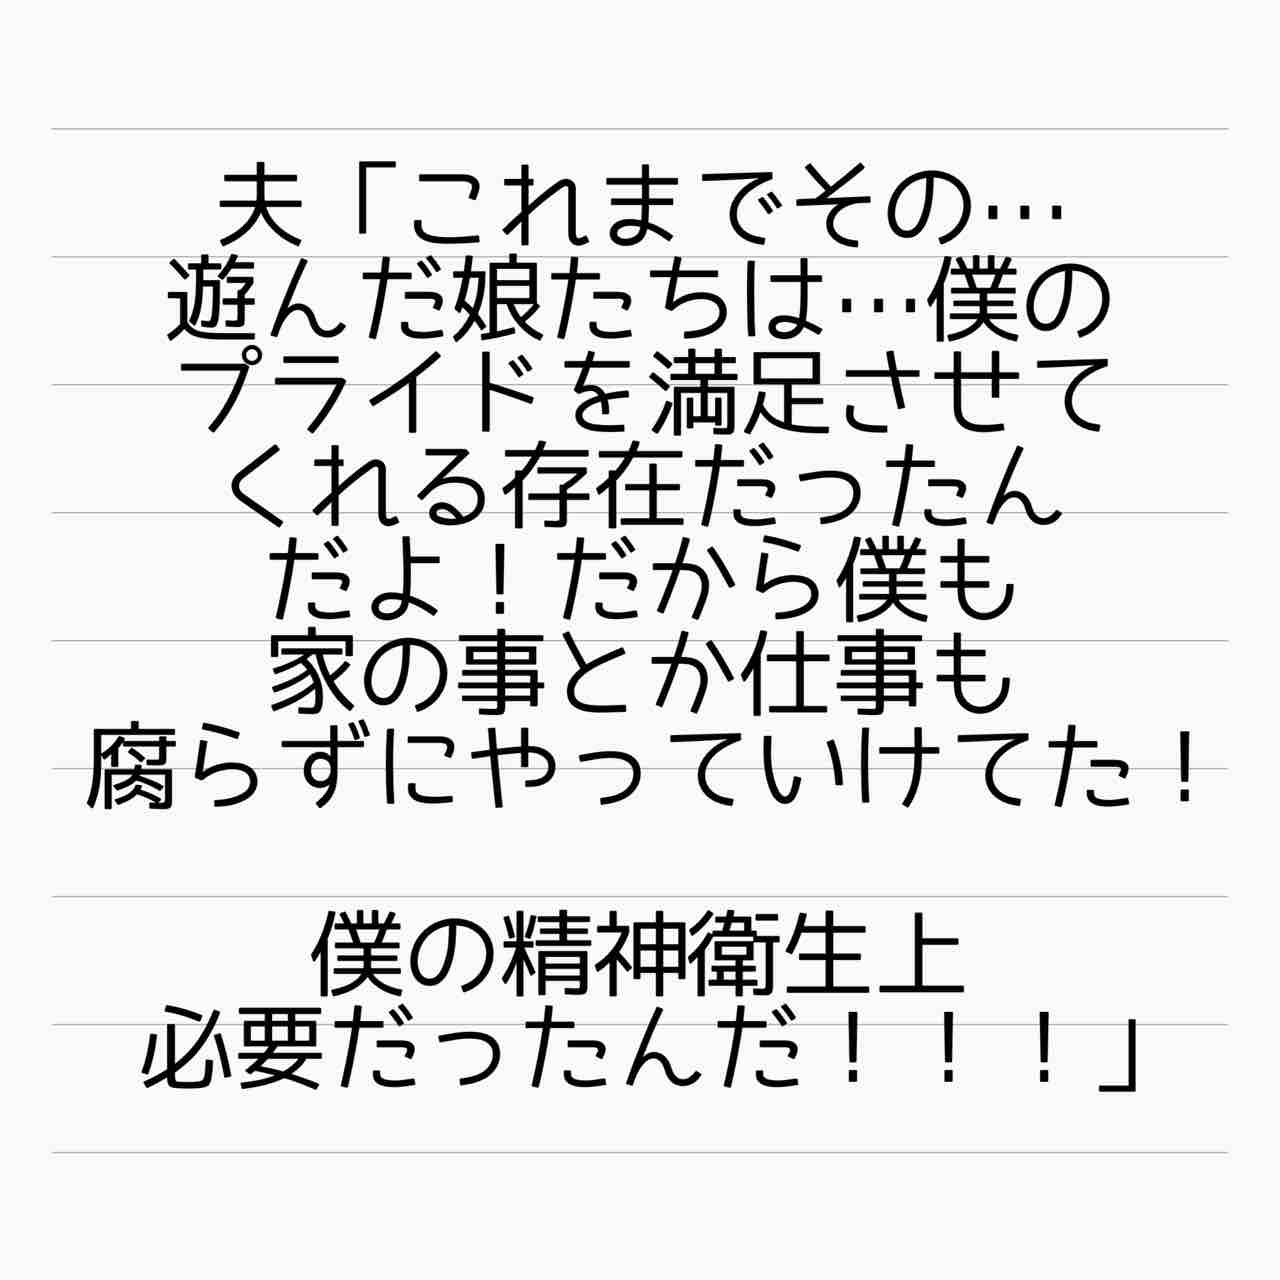 夫「これまでその…
遊んだ娘たちは…僕の
プライドを満足させて
くれる存在だったん
だよ！だから僕も
家の事とか仕事も
腐らずにやっていけてた！
僕の精神衛生上
必要だったんだ！！！」